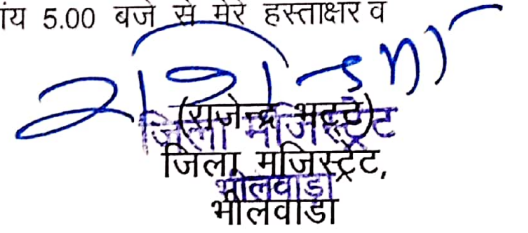 ांय 5.00 बजे से मेरे हस्ताक्षर व
(राजेन्द्र भट्ट)
जिला मजिस्ट्रेट
जिला मजिस्ट्रेट,
भीलवाड़ा
भीलवाडा